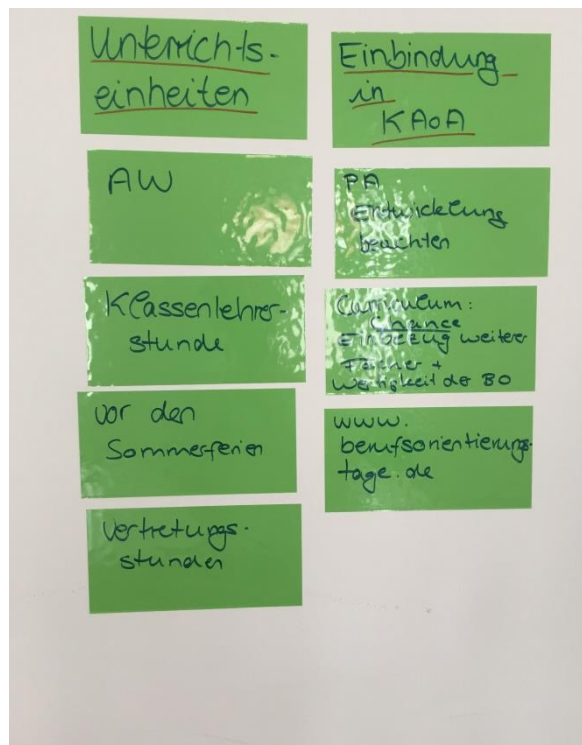 Unterrichts-
einheiten
AW
Klassenlehrer-
stunde
vor den
Sommerferien
Vertretungs-
stunden
Einbindung
in
KAoA
PA
Entwicklung
beachten
Curriculum:
Chance
Einbezug weiterer
Fächer +
Wertigkeit der BO
www.
berufsorientierungs-
tage.de